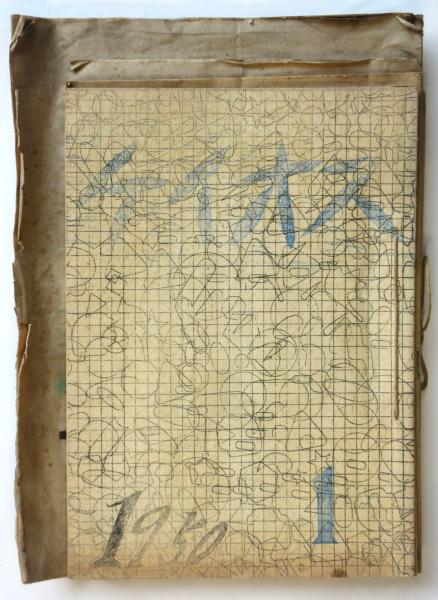 ケイオス
1
1950